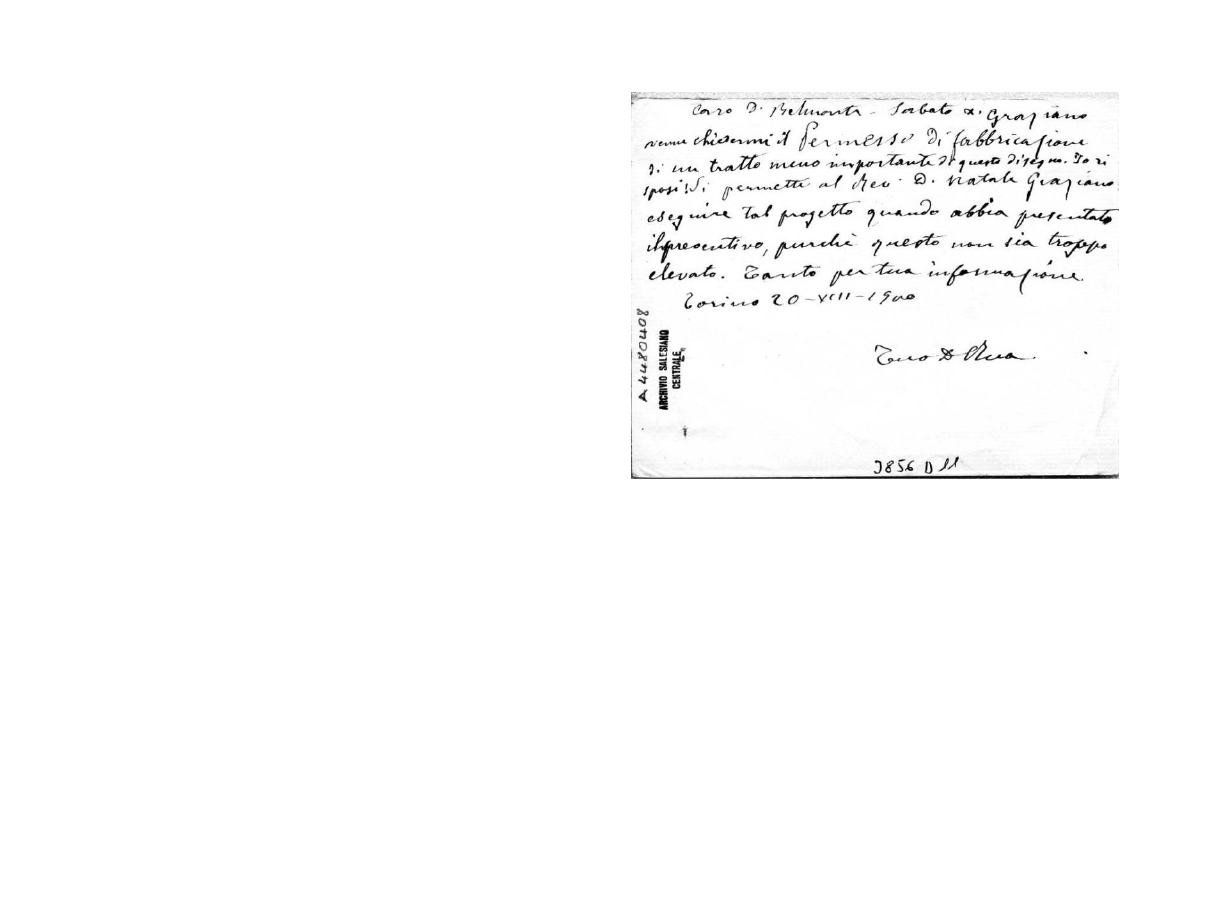 Caro D. Belmonte - Sabato D. Graziano
venne chiedermi il permesso di fabbricazione
di un tratto meno importante di questo disegno. Io ri
sposi: Si permette al Rev. D. Natale Graziano
eseguire tal progetto quando abbia presentato
il preventivo, purchè questo non sia troppo
elevato. Tanto per tua informazione.
Torino 20-VIII-1900
Tuo D Rua.
A4480408
ARCHIVIO SALESIANO
CENTRALE
3856 D 11